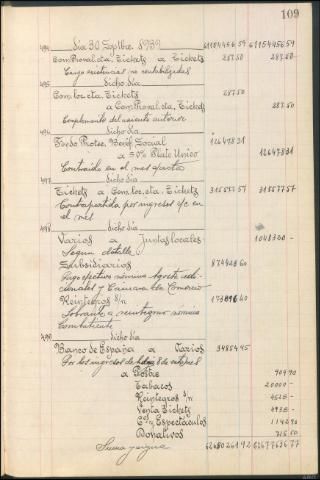 109
494 dia 30 Septbre. 1939 61154456 59 61154456 59
Com. Proval. cta. Tickets a Tickets 287.50 287.50
Cargo existencias no contabilizadas
495 dicho dia
Com. loc. cta. Tickets 287.50
a Com. Proval. cta. Tickets 287.50
Complemento del asiento anterior
496 dicho dia
Fondo Protec. Benéf. Social 12647831
a 50% Plato Unico 12647831
Contraido en el mes
497 dicho dia
Tickets a Com. loc. cta. Tickets 31557757 31557757
Contrapartida por ingresos c/c en
el mes
498 dicho dia
Varios a Juntas locales 1048300 -
Segun detalle
Subsidiarios 874903 60
Pago efectivo nómina Agosto
y Cámara de Comercio
Reintegros s/n 173396 40
Sobrante a reintegrar nómina
Combatiente
499 dicho dia
Banco de España a Varios 34854 45
Por los ingresos de 8 de
a Postre 709 70
Tabacos 20000 -
Reintegros s/n
Venta Tickets 4938 -
Cs. y Espectáculos
Donativos 715 50
Suma y sigue 62680261 92 62677636 77